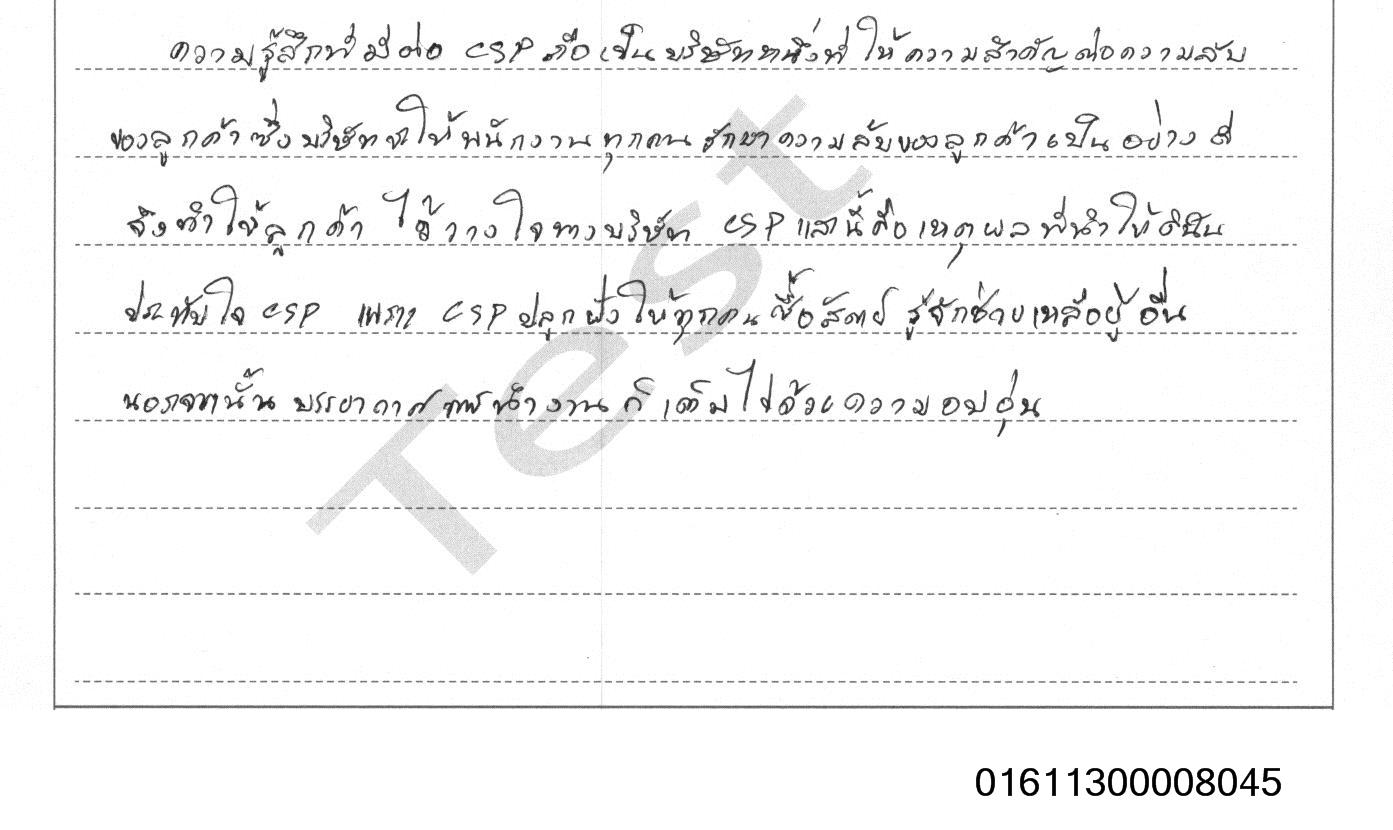 ความรู้สึกที่มีต่อ CSP คือเป็นบริษัทหนึ่งที่ให้ความสำคัญต่อความลับ
ของลูกค้า ซึ่งบริษัทจะให้พนักงานทุกคน รักษาความลับของลูกค้าเป็นอย่างดี
จึงทำให้ลูกค้า ไว้วางใจทางบริษัท CSP และนี้คือเหตุผลที่ทำให้ดิฉัน
ประทับใจ CSP เพราะ CSP ปลูกฝังให้ทุกคนซื่อสัตย์ รู้จักช่วยเหลือผู้อื่น
นอกจากนั้น บรรยากาศการทำงานก็เต็มไปด้วยความอบอุ่น
Test
01611300008045